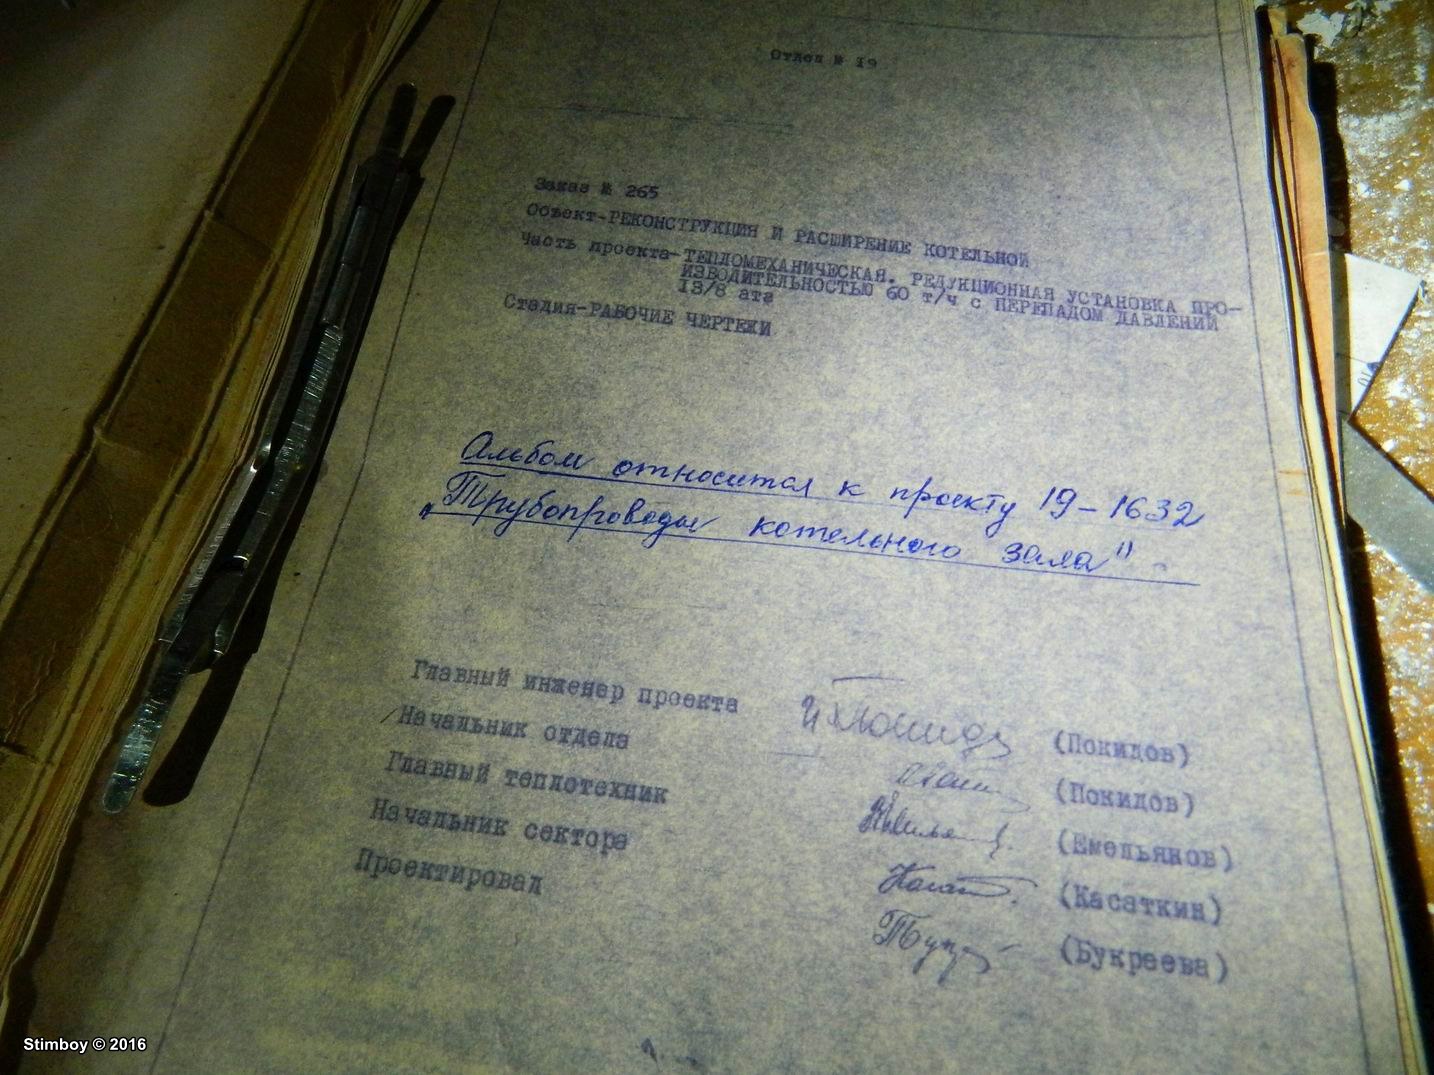 Отдел № 19
Заказ № 265
Объект-РЕКОНСТРУКЦИЯ И РАСШИРЕНИЕ КОТЕЛЬНОЙ
Часть проекта-ТЕПЛОМЕХАНИЧЕСКАЯ. РЕДУКЦИОННАЯ УСТАНОВКА ПРО-
ИЗВОДИТЕЛЬНОСТЬЮ 60 т/ч с ПЕРЕПАДОМ ДАВЛЕНИЙ
13/8 ата
Стадия-РАБОЧИЕ ЧЕРТЕЖИ
Альбом относится к проекту 19-1632
„Трубопроводы котельного зала"
Главный инженер проекта (Покидов)
Начальник отдела (Покидов)
Главный теплотехник (Емельянов)
Начальник сектора (Касаткин)
Проектировал (Букреева)
Stimboy © 2016